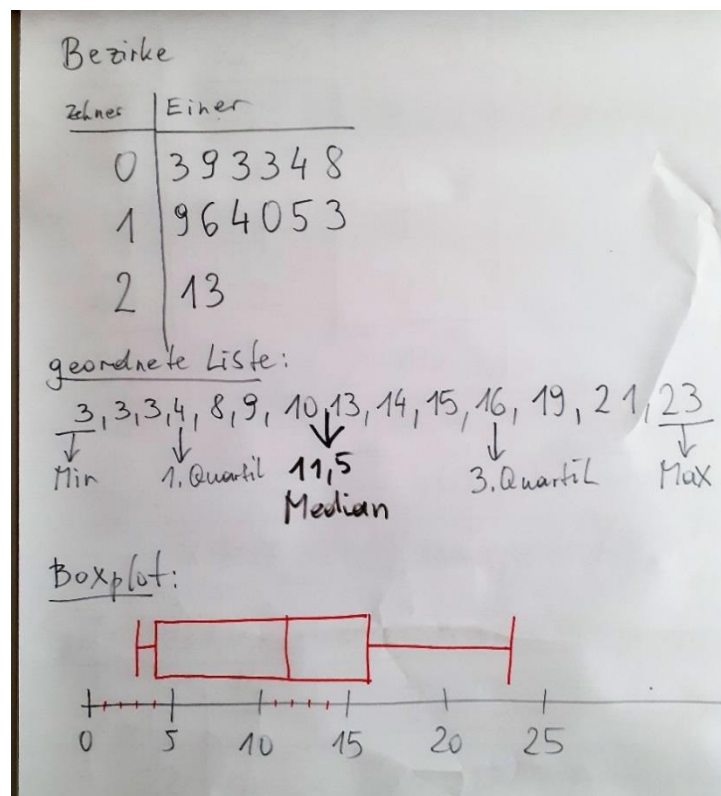 Bezirke
Zehner Einer
0 393348
1 964053
2 13
geordnete Liste:
3, 3, 3, 4, 8, 9, 10, 13, 14, 15, 16, 19, 21, 23
Min 1. Quartil 11,5 3. Quartil Max
Median
Boxplot:
0 5 10 15 20 25